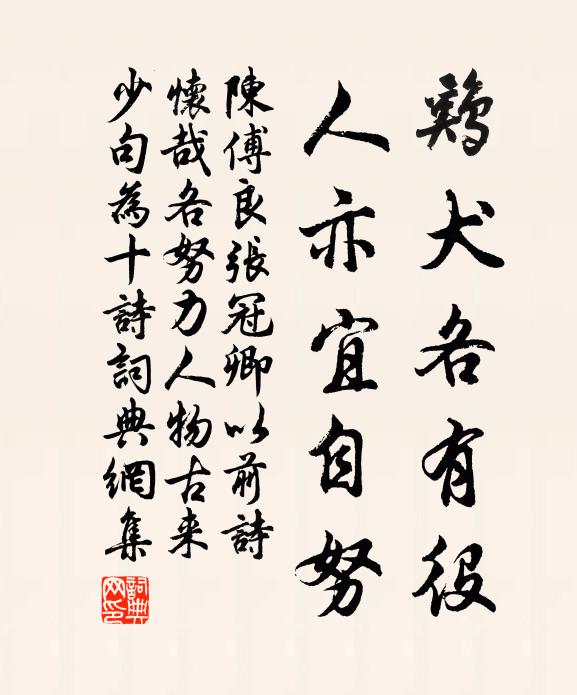 鷄犬各有役
人亦宜自努
陳傅良張冠卿以前詩
懷哉各努力人物古来
少句為十詩詞典網集
詞典
网印